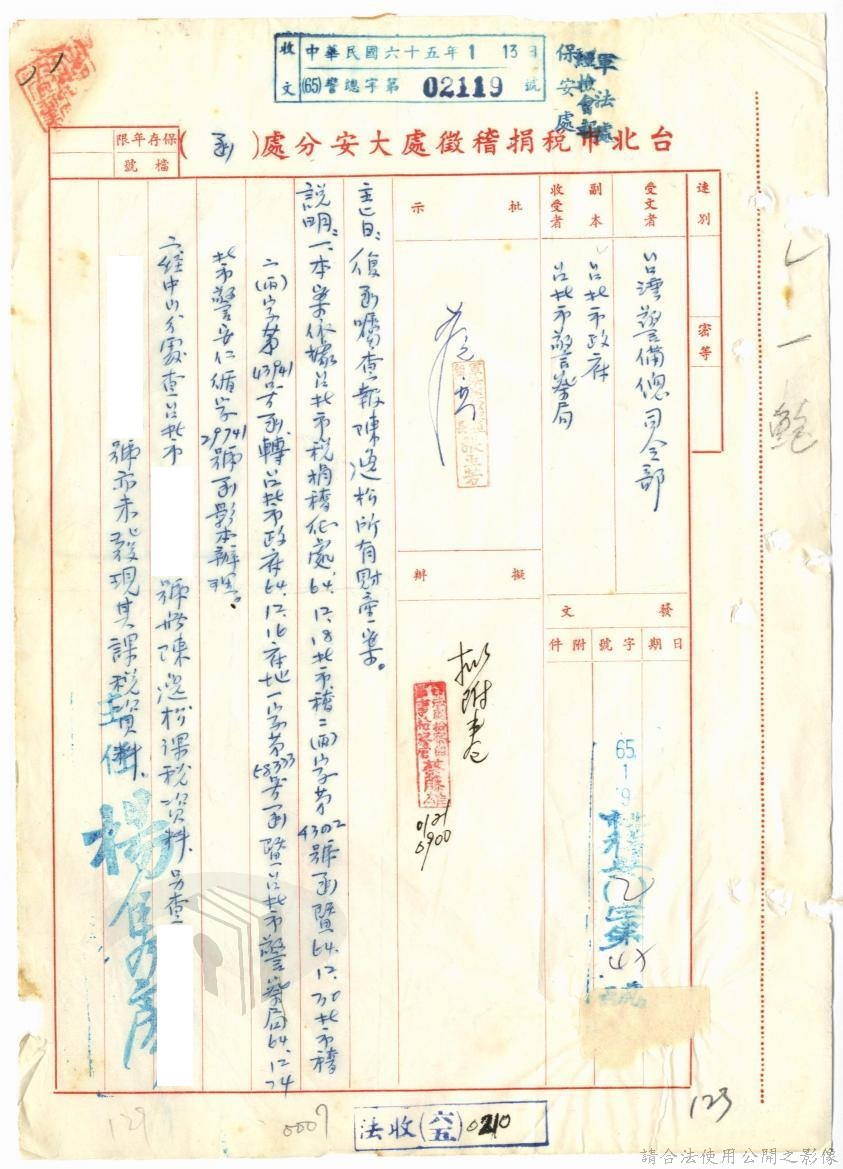 收文 中華民國六十五年1 13日
(65)警總字第 02119 號
保安處
軍法處
台北市稅捐稽徵處大安分處(函)
保存年限
檔號
速別
密等
受文者 台灣警備總司令部
副本收受者 台北市政府
台北市警察局
發文
日期 字號 附件
65. 1 9
批示
擬辦
擬附卷
0121
0900
主旨:復函囑查報陳逸松所有財產一案。
說明:一、本案依據台北市稅捐稽征處64.12.18北市稽二(丙)字第43002號函暨64.12.30北市稽
二(丙)字第43941號函轉台北市政府64.12.16府地一字第58333號函暨台北市警察局64.12.24
北市警安仁循字29741號函影本辦理。
二、經中山分處查台北市 號無陳逸松課稅資料.另查
號亦未發現其課稅資料.
法收(六五)0210
0007
129
123
請合法使用公開之影像